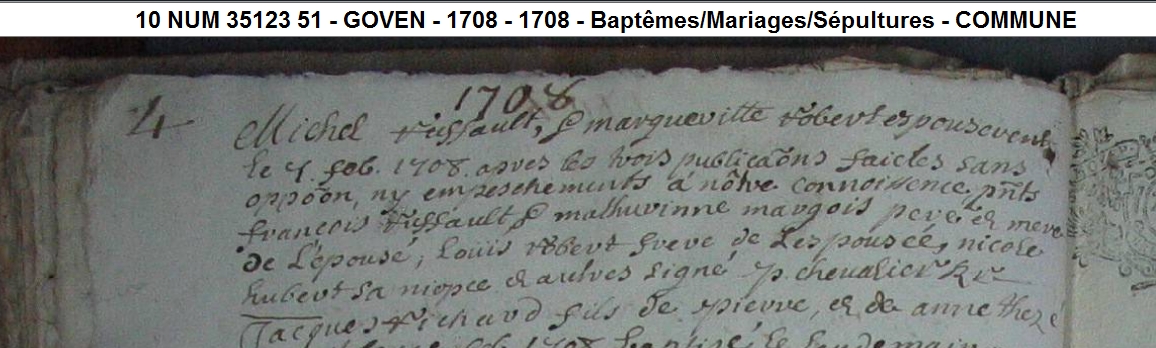 10 NUM 35123 51 - GOVEN - 1708 - 1708 - Baptêmes/Mariages/Sépultures - COMMUNE
1708
4
Michel Tissault, & margueritte Robert espouserent
le 7. feb. 1708. apres les trois publicaõns faictes sans
oppõon, ny empeschements á nõtre connoissence, pñts
françois Tissault & mathurinne margois pere et mere
de L'épousé, Louis Robert frere de Lespouseé, nicole
hubert sa niepce et autres signé p. chevalier Rr
Jacques Richard fils de pierre, et de anne
feb. 1708 baptisé le lendemain